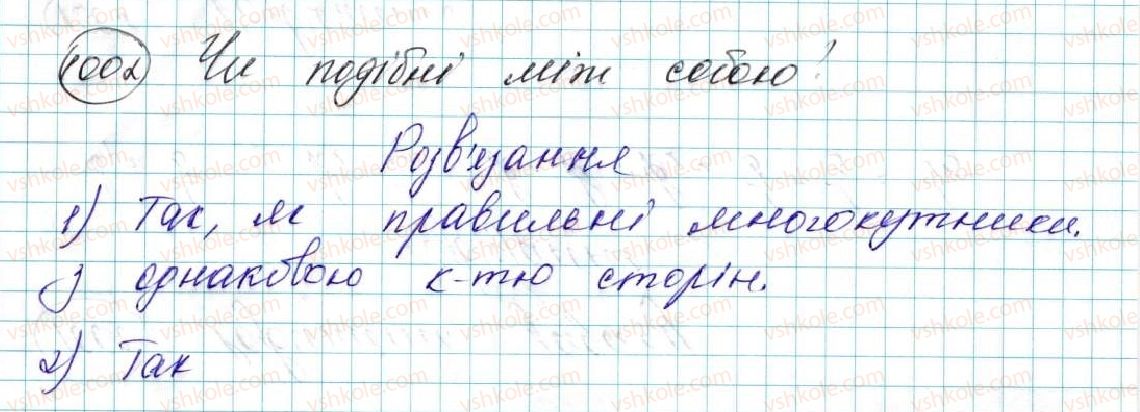 1002 Чи подібні між собою?
Розв'язання
1) Так, як правильні многокутники
з однаковою к-тю сторін.
2) Так